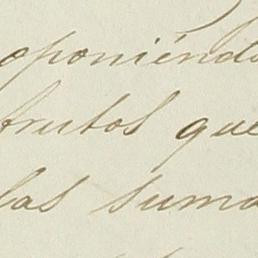 oponiéndo
frutos que
las suma